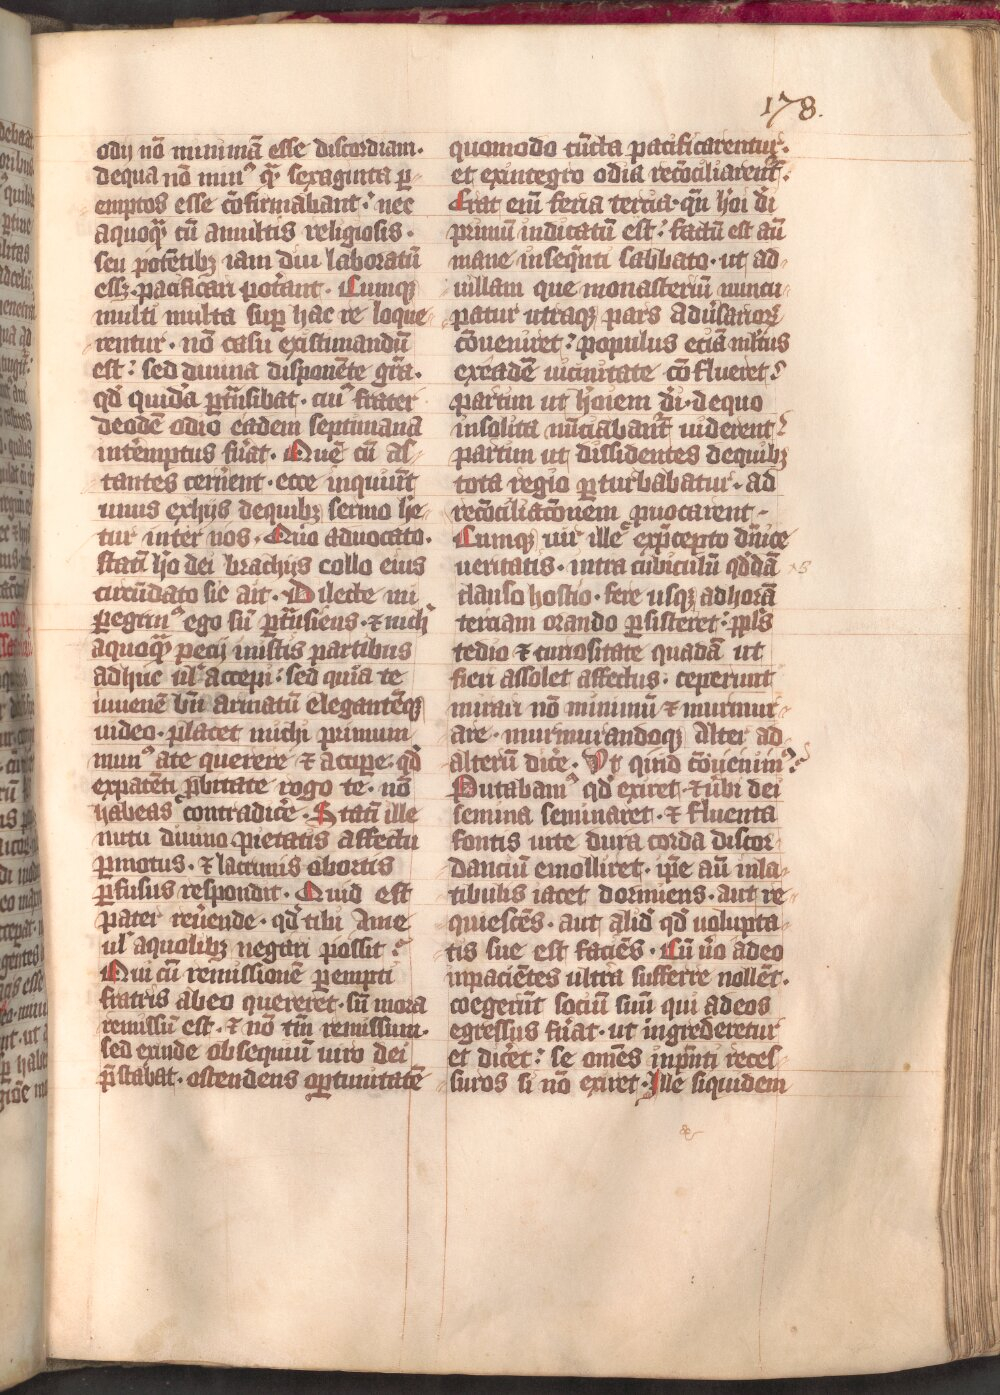 178.
odij nō minimā esse discordiam·
dequa nō min⁹ qͣ sexaginta ꝑ
emptos esse cōfirmabant: nec
aquoqͣ cū amultis religiosis·
seu potētibꝫ iam diu laboratū
essꝫ·pacificari pot̄ant· Cumqꝫ
multi multa suꝑ hac re loque
rentur· nō casu existimandū
est: sed diuina disponēte gr̄a·
qd̄ quidā ꝑtn̄sibat· cui⁹ frater
deodē odio eadem septimana
intēmptus fūat· Quē cū as
tantes cern̄ent· ecce inquiūt
unus exhijs dequibꝫ sermo he
tur inter uos· Quo aduocato·
statī ho dei brachijs collo eius
circūdato sic ait· Dilecte mi
ꝑegrin⁹ ego sū ꝑtn̄siens· ⁊ nichͥ
aquoqͣ pecij inistis partibus
adhuc ul̄ accepi: sed quia te
iuuenē bn̄ armatū elegantēqꝫ
uideo· placet michi primum
mun⁹ ate querere ⁊ accipe· qd̄
expatēti ꝓbitate rogo te· nō
habeas contradicē· Statī ille
nutu diuino pietatis affectu
ꝑmotus· ⁊ lacrimis obortis
ꝑfusus respondit· Quid est
pater reūende· qd̄ tibi Ame
ul̄ aquolibꝫ negari possit?
Qui cū remissionē ꝑempti
fratris abeo quereret· sn̄ mora
remissū est· ⁊ nō tm̄ remissum·
sed exinde obsequiū uiro dei
p̄stabat· ostendens oꝑtunitatē
quomodo cūcta pacificarentur·
et exintegro odia recōciliarent̄·
Erat eīm feria tercia· qn̄ hoi di
primū indicatū est: factū est aū
mane inseqn̄ti sabbato· ut ad
uillam que monasteriū nuncu
patur utraqꝫ pars adūsarioꝝ
cōueniret: populus eciā mltus
exeadē uicinitate cōflueret:
partim ut hoiem di· dequo
insolita nūciabant̄ uiderent:
partim ut dissidentes dequibꝫ
tota regio ꝑturbabatur· ad
recōciliacōnem ꝓuocarent·
Cumqꝫ uir ille exp̄cepto dn̄ice
ueritatis· intra cubiculū qd̄dā
clauso hostio· fere usqꝫ adhorā
terciam orando ꝑsisteret: ppls
tedio ⁊ curiositate quadā ut
fieri assolet affectus· ceperunt
mirari nō minimū ⁊ murmur
are· murmurandoqꝫ Alter ad
alterū dicē· Vt quid cōuenim⁹?
Putabam⁹ qd̄ exiret ⁊ ubi dei
semina seminaret· ⁊ fluenta
fontis uite dura corda discor
danciū emolliret· ip̄e aū inla
tibulis iacet dormiens· aut re
quescēs· aut aliđ qd̄ uolupta
tis sue est faciēs· Cū ūo adeo
inpaciētes ultra sufferre nollēt·
coegerūt sociū suū qui adeos
egressus fūat· ut ingrederetur
et dicēt: se omēs inp̄nti reces
suros si nō exiret· Ille siquidem